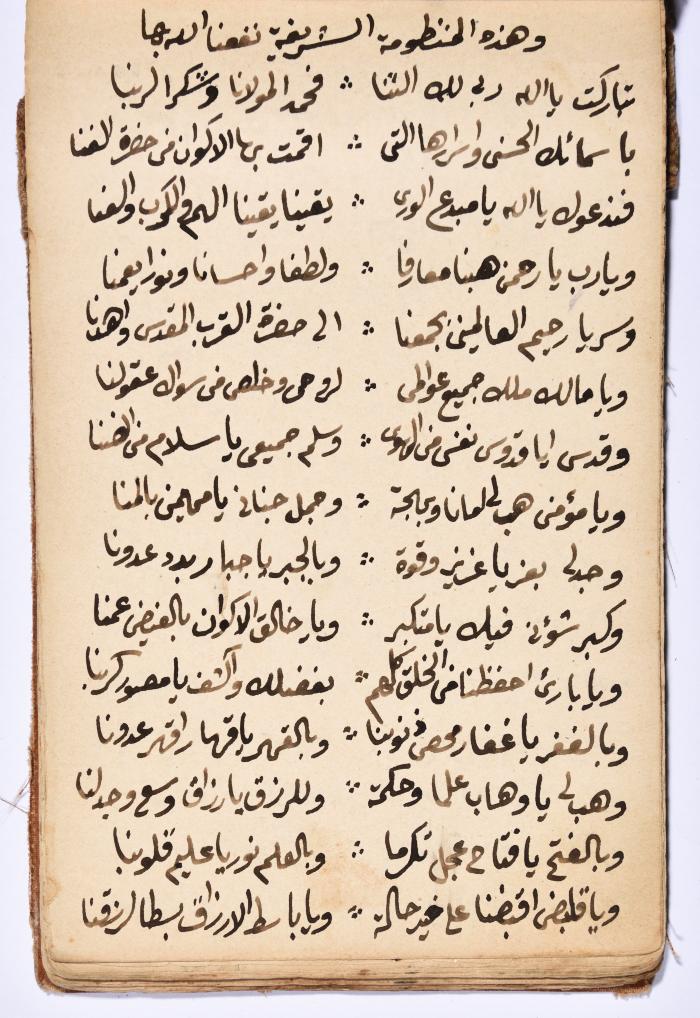 وهذه المنظومة الشريفة نفعنا الله بها
تباركت يا الله ربي لك الثنا ∴ فحمدا لمولانا وشكرا لربنا
باسمائك الحسنى واسرارها التى ∴ اقمت بها الاكوان من حضرة الفنا
فندعوك يا الله يا مبدع الورى ∴ يقينا يقينا الهم والكرب والعنا
ويا رب يا رحمن هبنا معارفا ∴ ولطفا واحسانا ونورا يعمنا
وسر يا رحيم العالمين بجمعنا ∴ الى حضرة القرب المقدس واهدنا
ويا مالك ملك جميع عوالمى ∴ لروحى وخلص من سواك عقولنا
وقدس ايا قدوس نفسى من الهوى ∴ وسلم جميعى يا سلام من الضنا
ويا مؤمن هب لى امانا وبهجة ∴ وجمل جنانى يا مهيمن بالمنا
وجد لى بعز يا عزيز وقوة ∴ وبالجبر يا جبار بدد عدونا
وكبر شؤنى فيك يا متكبر ∴ ويا خالق الاكوان بالفيض عمنا
ويا بارئ احفظنا من الخلق كلهم ∴ بفضلك واكشف يا مصور كربنا
وبالغفر يا غفار محص ذنوبنا ∴ وبالقهر يا قهار اقهر عدونا
وهب لى يا وهاب علما وحكمة ∴ وللرزق يا رزاق وسع وجد لنا
وبالفتح يا فتاح عجل تكرما ∴ وبالعلم نور يا عليم قلوبنا
ويا قابض اقبضنا على خير حالة ∴ ويا باسط الارزاق بسطا لرزقنا